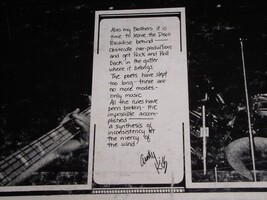 Alas my Brothers it is
time to leave the Disco
Paradise behind
Obliterate over-productions
and get Rock and Roll
back in the gutter
where it belongs.
The poets have slept
too long - there are
no more models -
only music
All the rules have
been broken - the
impossible accom-
plished
a synthesis of
inconsistency at
the mercy of
the wind!